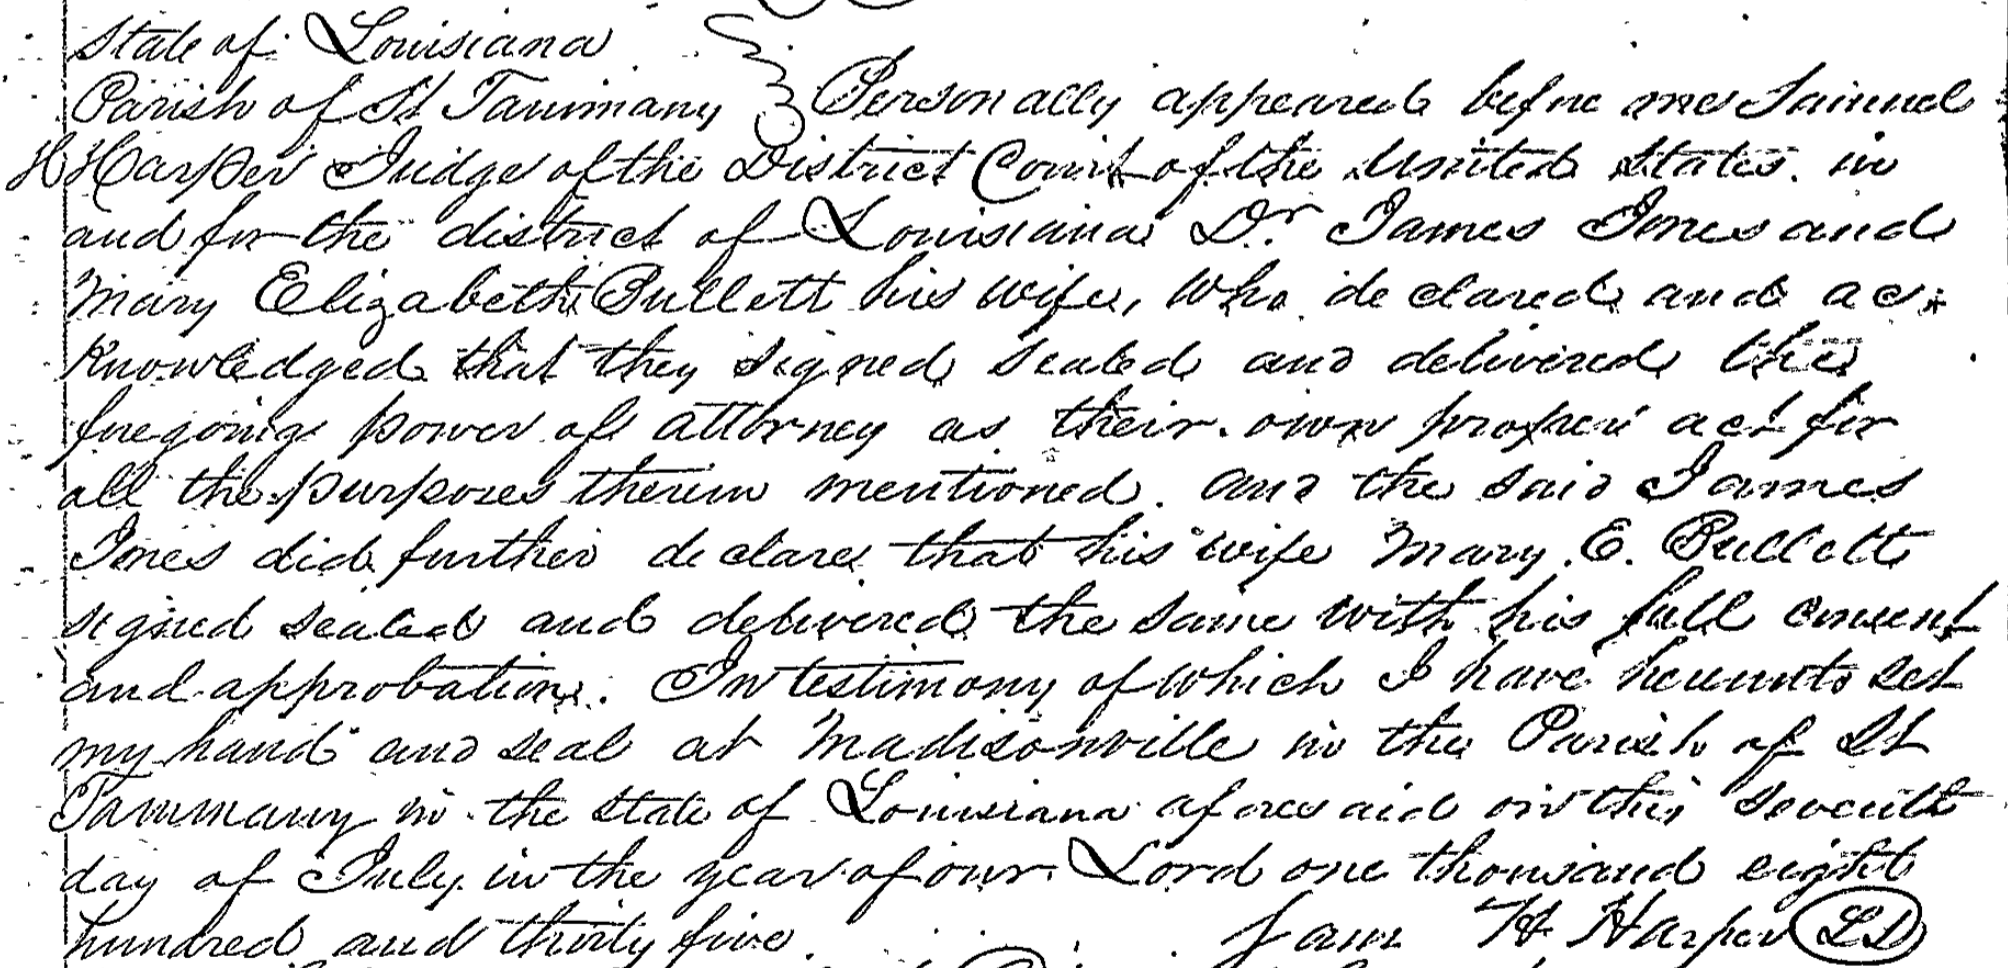 State of Louisiana
Parish of St Tammany } Personally appeared before me Samuel
H Harper Judge of the District Court of the United States. in
and for the district of Louisiana Dr. James Jones and
Mary Elizabeth Bullett his wife, who declared and ac-
knowledged that they signed sealed and delivered the
foregoing power of attorney as their own proper act for
all the purposes therein mentioned. and the said James
Jones did further declare that his wife Mary. E. Bullett
signed sealed and delivered the same with his full consent
and approbation. In testimony of which I have hereunto set
my hand and seal at Madisonville in the Parish of St
Tammany in the State of Louisiana aforesaid on this seventh
day of July in the year of our Lord one thousand eight
hundred and thirty five. Sam H Harper LS